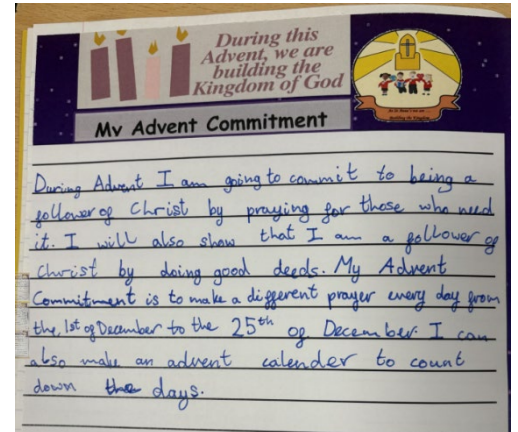 During this
Advent, we are
building the
Kingdom of God
My Advent Commitment
During Advent I am going to commit to being a
follower of Christ by praying for those who need
it. I will also show that I am a follower of
Christ by doing good deeds. My Advent
Commitment is to make a different prayer every day from
the 1st of December to the 25th of December. I can
also make an advent calender to count
down the days.